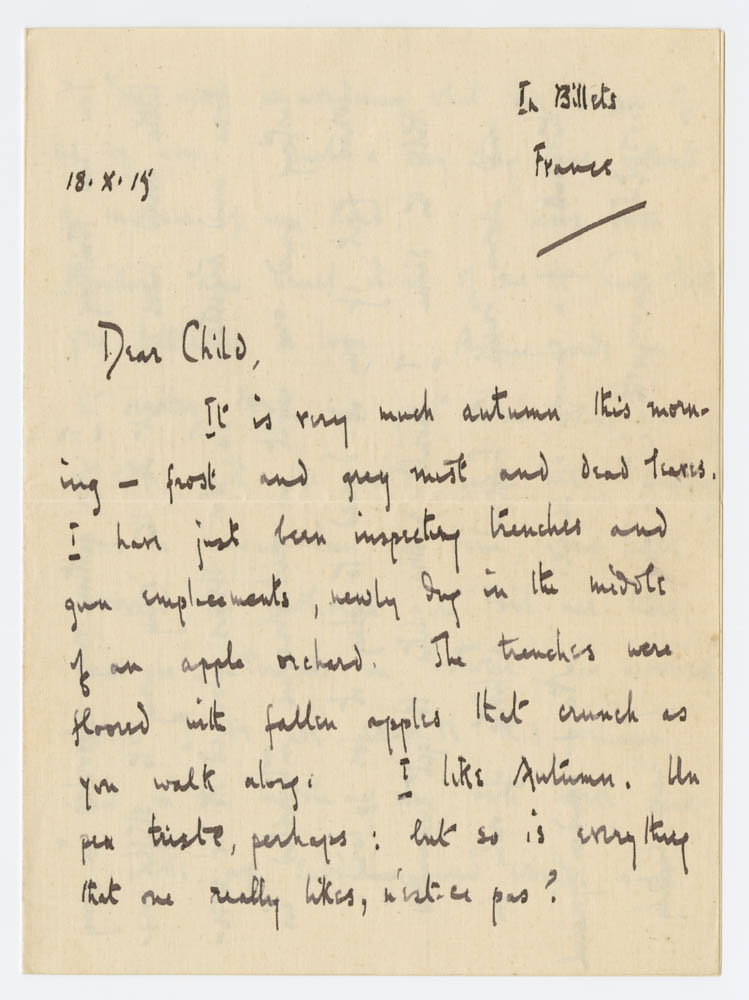 In Billets
France
18. X. 15
Dear Child,
It is very much autumn this morn-
ing – frost and grey mist and dead leaves.
I have just been inspecting trenches and
gun emplacements, newly dug in the middle
of an apple orchard. The trenches were
floored with fallen apples that crunch as
you walk along. I like Autumn. Un
peu triste, perhaps: but so is everything
that one really likes, n'est-ce pas?